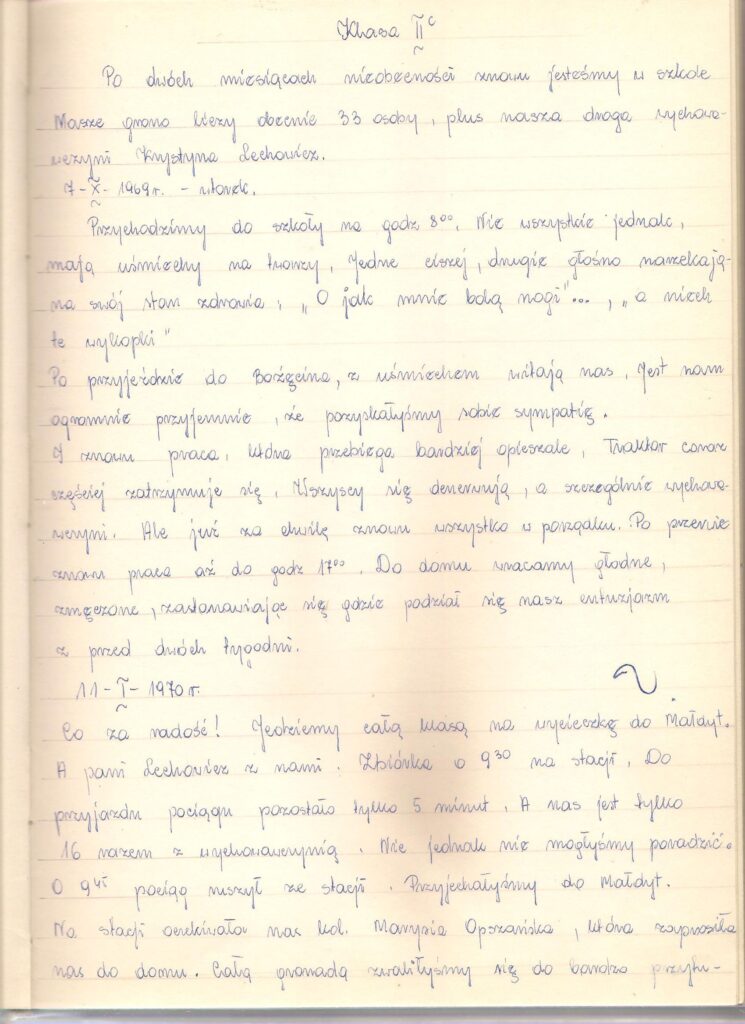 Klasa II c
Po dwóch miesiącach nieobecności znowu jesteśmy w szkole
Nasze grono liczy obecnie 33 osoby, plus nasza droga wychowa-
wczyni Krystyna Lechowicz.
7-X-1969 r. - wtorek.
Przychodzimy do szkoły na godz 8⁰⁰. Nie wszystkie jednak,
mają uśmiechy na twarzy. Jedne ciszej, drugie głośno narzekają-
na swój stan zdrowia; „O jak mnie bolą nogi"..., „a niech
te wykopki"
Po przyjeździe do Bożęcina, z uśmiechem witają nas. Jest nam
ogromnie przyjemnie, że pozyskałyśmy sobie sympatię.
I znowu praca, która przebiega bardziej opieszale, Traktor coraz
częściej zatrzymuje się. Wszyscy się denerwują, a szczególnie wychowa-
wczyni. Ale już za chwilę znowu wszystko w porządku. Po przerwie
znowu praca aż do godz 17⁰⁰. Do domu wracamy głodne,
zmęczone, zastanawiając się gdzie podział się nasz entuzjazm
z przed dwóch tygodni.
11-I-1970 r.
Co za radość! Jedziemy całą klasą na wycieczkę do Małdyt.
A pani Lechowicz z nami. Zbiórka o 9³⁰ na stacji. Do
przyjazdu pociągu pozostało tylko 5 minut. A nas jest tylko
16 razem z wychowawczynią. Nic jednak nie mogłyśmy poradzić.
O 9⁴⁵ pociąg ruszył ze stacji. Przyjechałyśmy do Małdyt.
Na stacji oczekiwała nas kol. Marysia Opszańska, która zaprosiła
nas do domu. Całą gromadą zwaliłyśmy się do bardzo przytu-